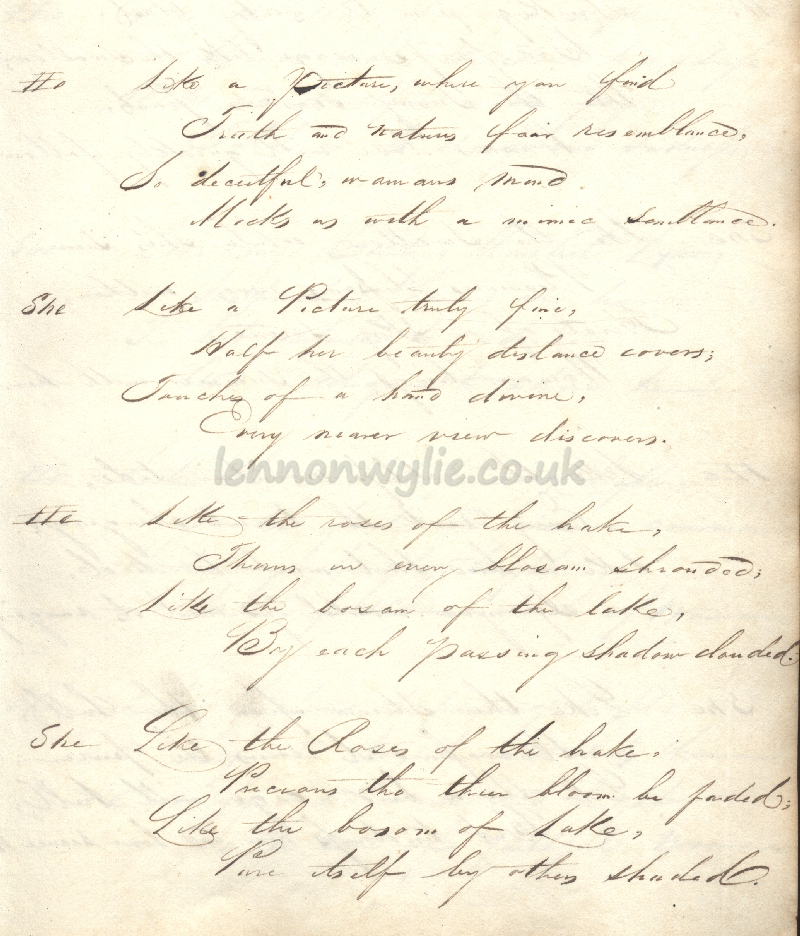 He Like a picture, where you find
Truth and natures fair resemblance,
So deceitful, womans mind
Mocks us with a mimic semblance.
She Like a Picture truly fine,
Half her beauty distance covers;
Touches of a hand divine,
Every nearer view discovers.
lennonwylie.co.uk
He Like the roses of the brake,
Thorns on every blosam shrouded;
Like the bosam of the lake,
By each passing shadow clouded.
She Like the Roses of the brake,
Precious tho their bloom be faded;
Like the bosom of Lake,
Pure itself by others shaded.